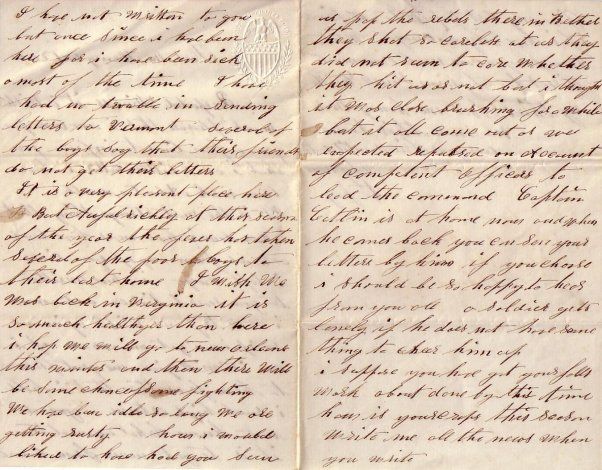 I hav not written to you
but once since i hav been
here for i have been sick
a most of the time I have
had no trouble in sending
letters to Vermont several of
the boys say that their friends
do not get their letters
It is a very pleasant place here
but awful sickly at this season
of the year the fever has taken
several of the poor boys to
their last home I wish we
was back in Virginia it is
so much healthyer than here
i hope we will go to new orleans
this winter and then there will
be some chance for some fighting
We have ben idle so long we are
getting rusty how i would
liked to have had you seen
us pop the rebels there in
they shot so careless at us they
did not seem to care whether
they hit us or not but i thought
it was close brushing for a while
but it all come out as we
expected repulsed on account
of competent officers to
lead the command Captain
is at home now and when
he comes back you can send your
letters by him if you choose
i should be so happy to hear
from you all a soldier gets
lonely if he does not have some
thing to cheer him up
i suppose you hav got your fall
work about done by this time
how is your crops this season
write me all the news when
you write